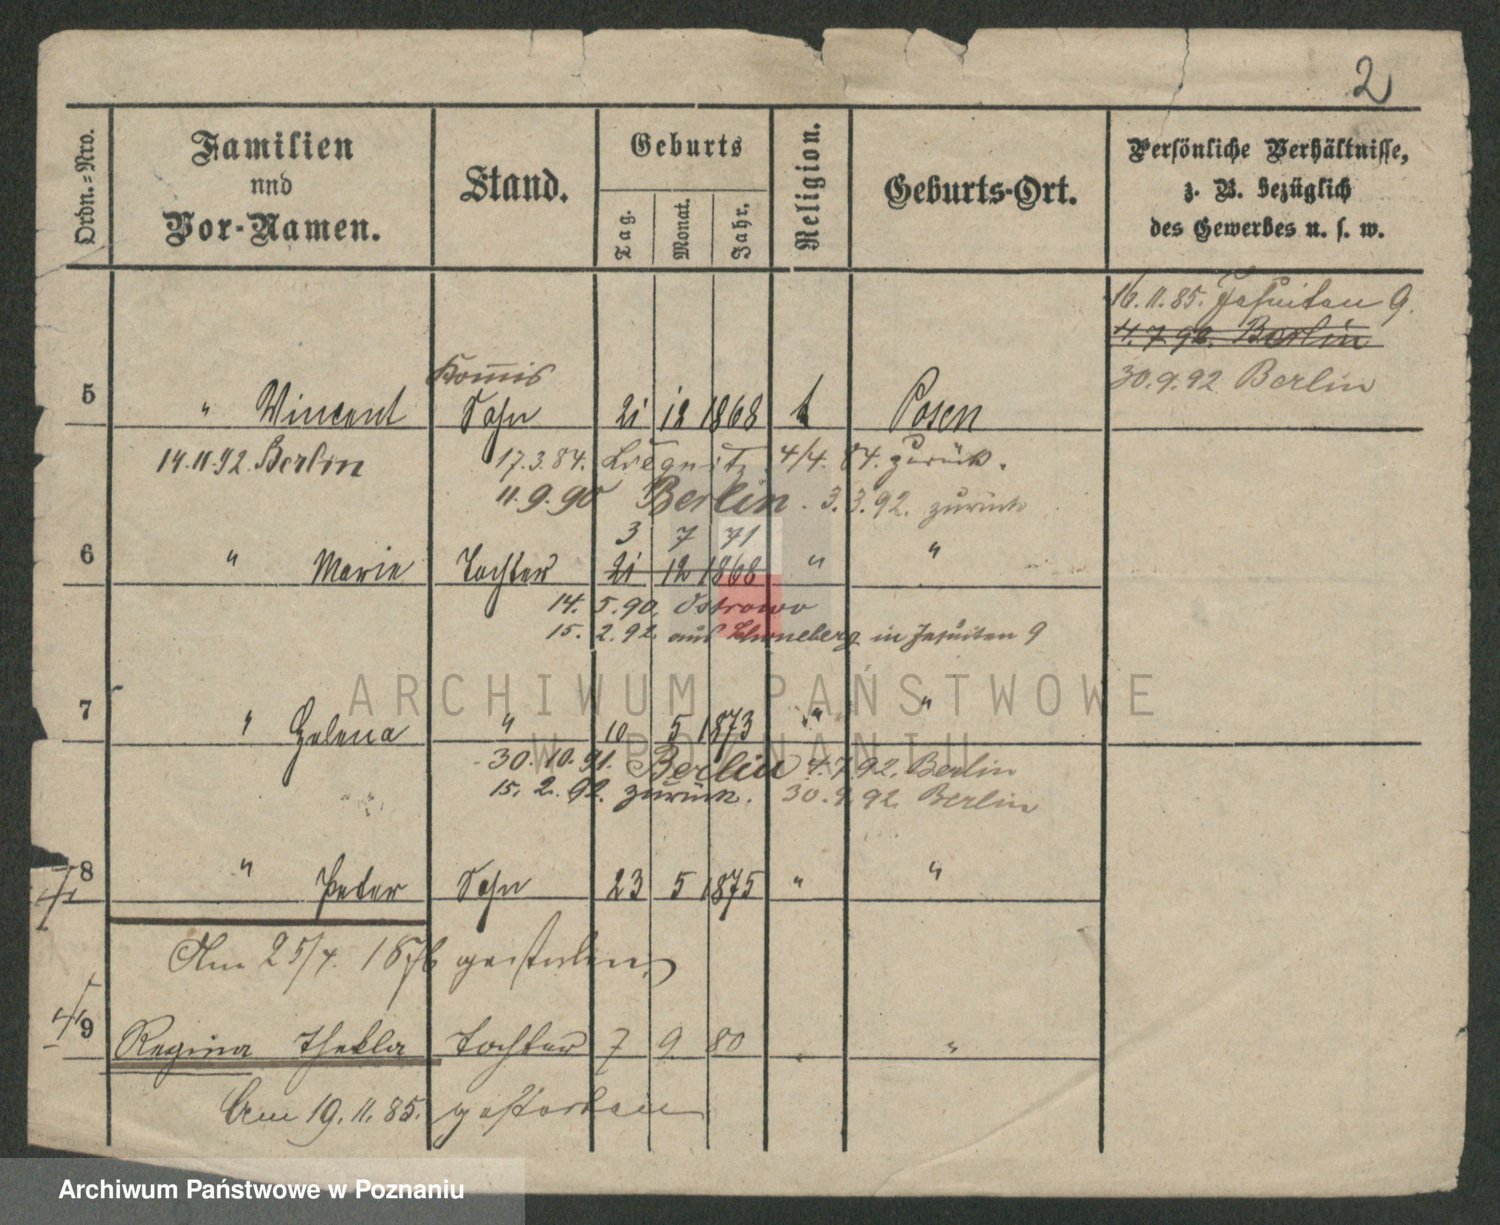 2
Ordn.-Nro.
Familien
und
Vor-Namen.
Stand.
Geburts
Tag.
Monat.
Jahr.
Religion.
Geburts-Ort.
Persönliche Verhältnisse,
z. B. bezüglich
des Gewerbes u. s. w.
16.11.85. Jesuiten 9.
4.7.92. Berlin
30.9.92 Berlin
Kommis
5 " Vincent Sohn 21 12 1868 k Posen
14.11.92 Berlin 17.3.84. Liegnitz 4/4. 84. zurück.
11.9.90 Berlin. 3.3.92. zurück
3 7 71
6 " Marie Tochter 21 12 1868 " "
14. 5.90. Ostrowo
15. 2.92. aus in Jesuiten 9
7 " Helena " 10 5 1873 " "
30.10.91. Berlin 4.7.92. Berlin
15. 2. 92. zurück. 30.9.92. Berlin
8 " Peter Sohn 23 5 1875 " "
Am 25/4. 1876 gestorben
9 Regina Thekla Tochter 7 9 80 " "
Am 19.11.85. gestorben
ARCHIWUM PAŃSTWOWE
W POZNANIU
Archiwum Państwowe w Poznaniu